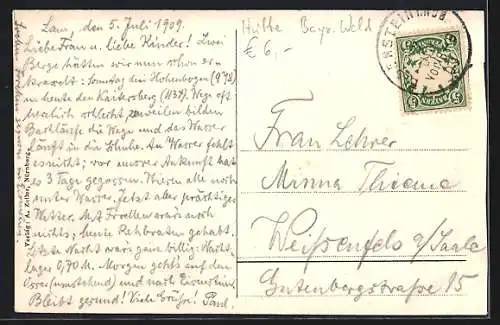 Lam, den 5. Juli 1909.
Liebe Frau u. liebe Kinder! Zwei
Berge hätten wir nun schon er-
kraxelt: Sonntag den Hohenbogen (972)
u. heute den Kaitersberg (1134). Wege oft
recht schlecht, zuweilen bilden
Bachläufe die Wege und das Wasser
läuft in die Schuhe. An Wasser fehlt
es nicht; vor unserer Ankunft hat
es 3 Tage gegossen. Alles noch
unter Wasser, jetzt aber prächtiges
Wetter. Mit Forellen war's noch
nichts; heute Rehbraten gehabt.
Letzte Nacht war's ganz billig: Nacht-
lager 0,70 M. Morgen geht's auf den
Osser (umstehend) und nach Eisenstein.
Bleibt gesund! Viele Grüße! Paul.
Verlag: A. Zerreis, Nürnberg.
Hütte Bayr. Wald
€ 6,-
BAYERN
5
Frau Lehrer
Minna Thieme
Weißenfels a/Saale
Gutenbergstraße 15